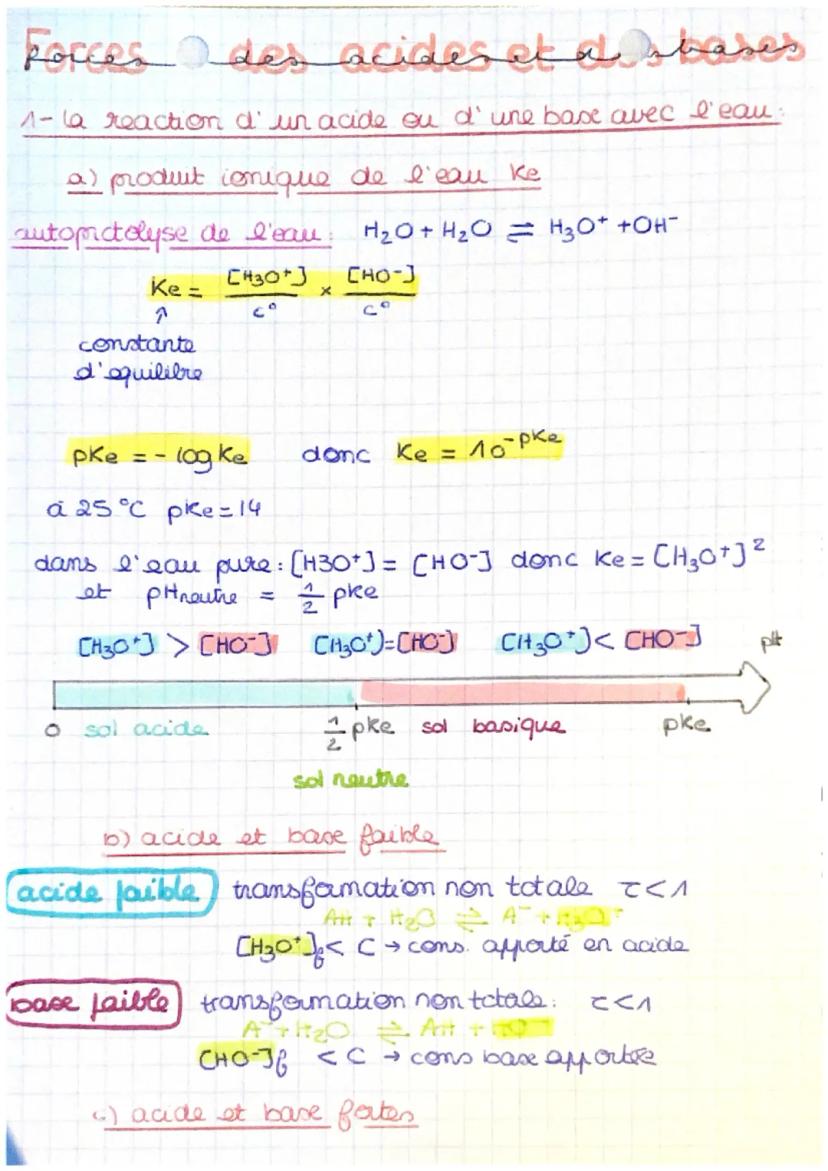 Forces des acides et des bases
1- la reaction d'un acide ou d'une base avec l'eau:
a) produit ionique de l'eau Ke
autoprotolyse de l'eau: H₂O + H₂O ⇌ H₃O⁺ + OH⁻
Ke = [H3O⁺]/c° × [HO-]/c°
↑
constante
d'equilibre
pKe = - log Ke donc Ke = 10^-pKe
à 25 °C pKe = 14
dans l'eau pure: [H3O⁺] = [HO-] donc Ke = [H₃O⁺]²
et pHneutre = 1/2 pKe
[H₃O⁺] > [HO-] [H₃O⁺] = [HO-] [H₃O⁺] < [HO-] pH
0 sol acide 1/2 pKe sol basique pKe
sol neutre
b) acide et base faible
acide faible transformation non totale τ<1
AH + H₂O ⇌ A⁻ + H₃O⁺
[H₃O⁺]f < C → cons. apporté en acide
base faible transformation non totale: τ<1
A⁻ + H₂O ⇌ AH +
[HO-]f < C → cons base apportée
c) acide et base fortes